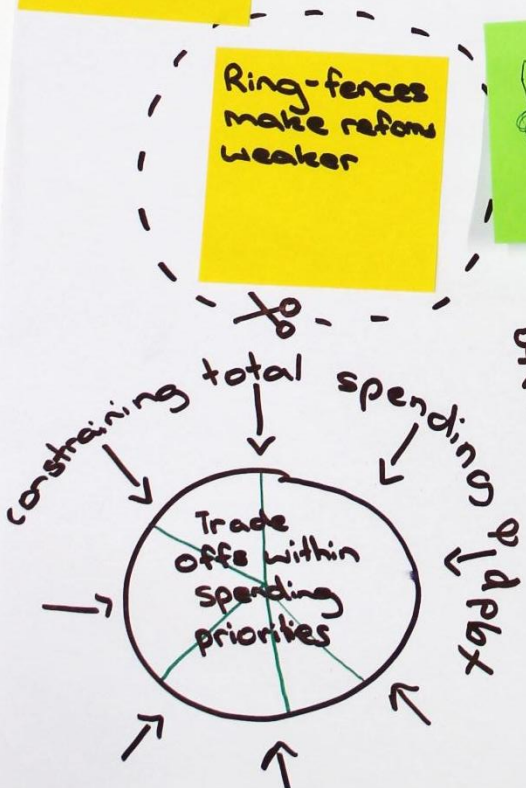 Ring-fences
make reform
weaker
constraining total spending
Trade
offs within
spending
priorities